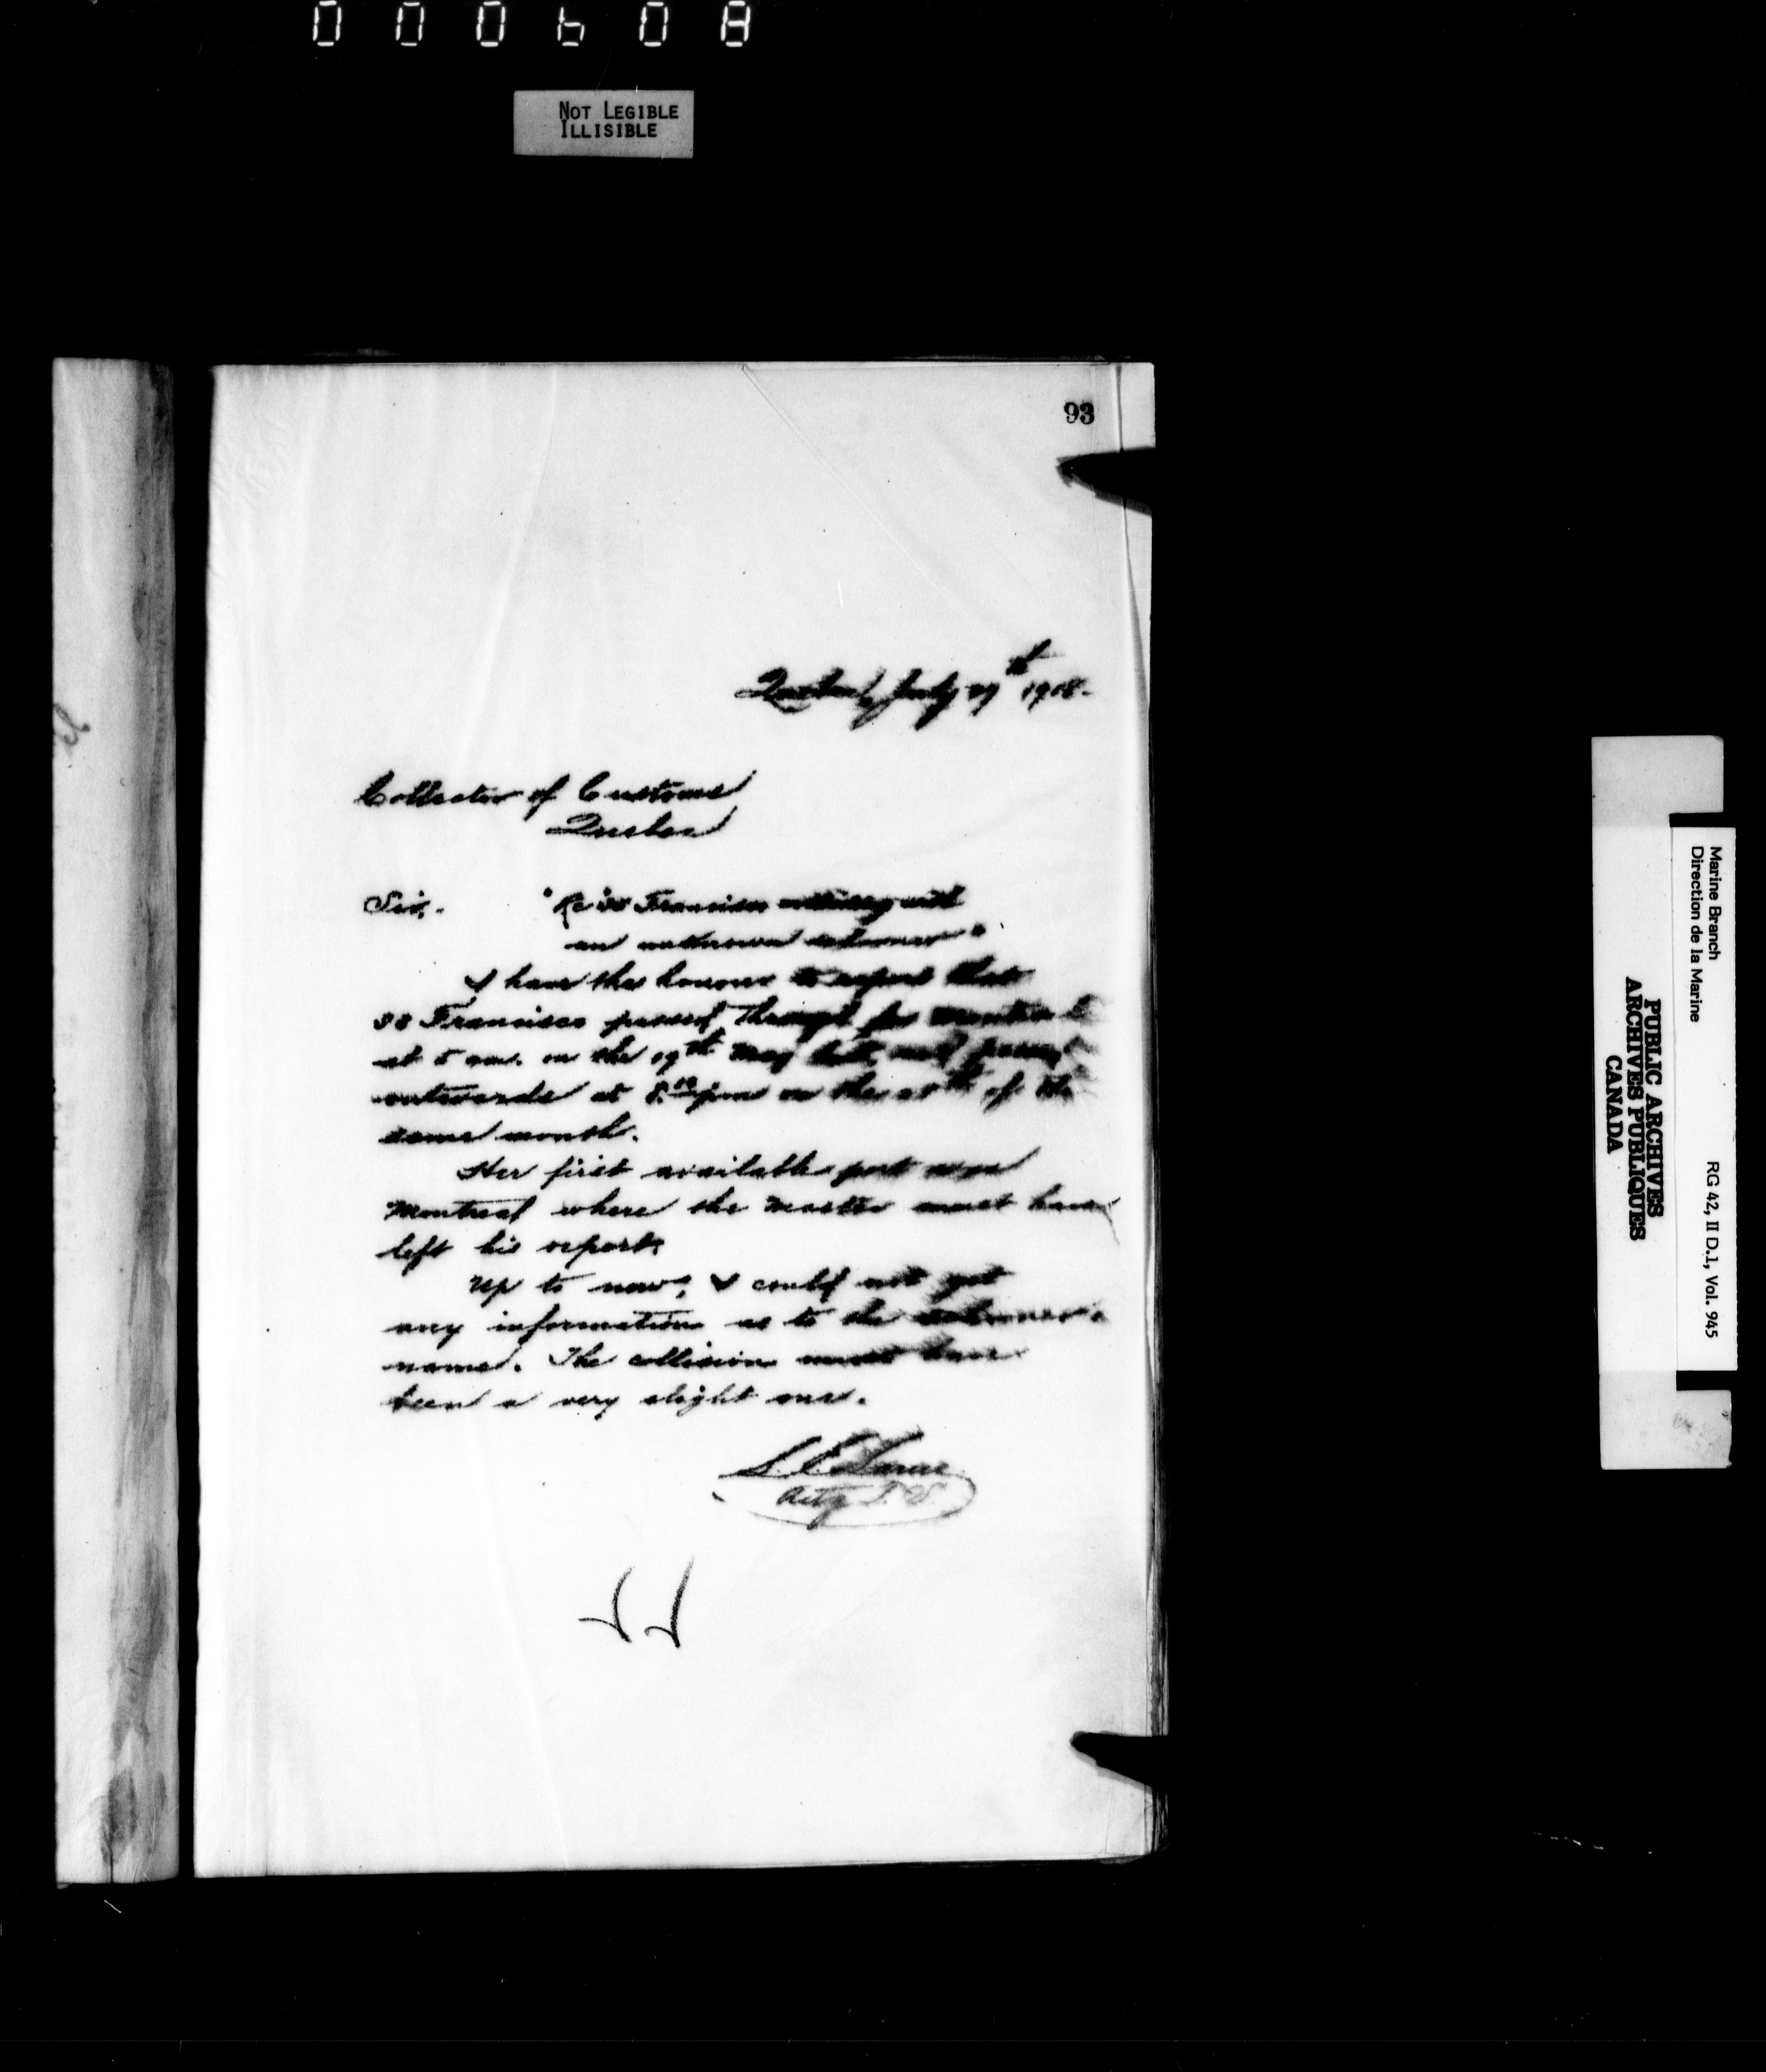 000608
NOT LEGIBLE
ILLISIBLE
93
Quebec, July th 1908.
Collector of Customs
Quebec
Sir,. "Re SS Francisco with
an unknown schooner".
I have the honour to report that
SS Francisco passed through for Montreal
at 5 am. on the 19th May last, and passed
outwards at 8.10 pm on the th of the
same month.
Her first available port was
Montreal where the master must have
left his report.
Up to now, I could not get
any information as to the schooner's
name. The collision must have
been a very slight one.
Actg
Marine Branch
Direction de la Marine
RG 42, II D.1, Vol. 945
PUBLIC ARCHIVES
ARCHIVES PUBLIQUES
CANADA